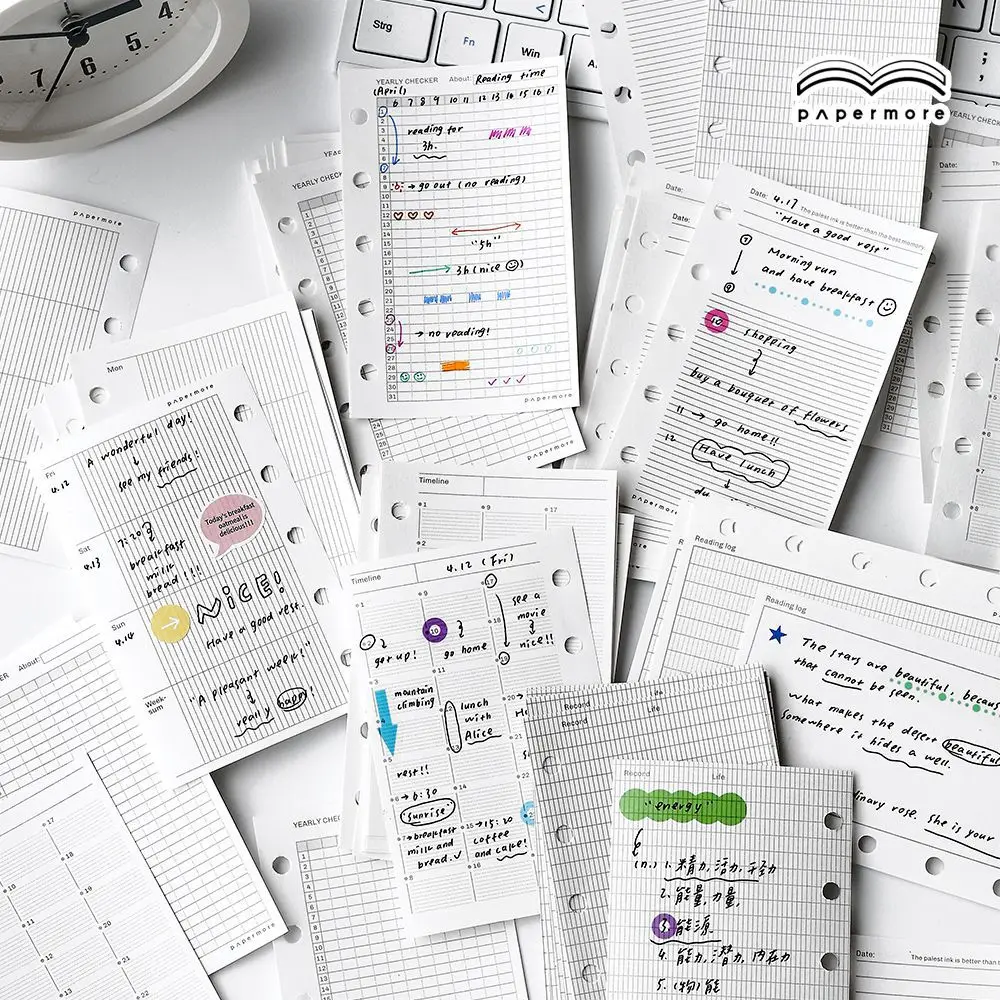 4
5
6
7
Strg
Fn
Win
<
K
;
pʌpermore
YEARLY CHECKER About: Reading time
(April)
6 7 8 9 10 11 12 13 14 15 16 17
reading for
3h.
:b: → go out (no reading)
"5h"
3h (nice ☺)
→ no reading!
pʌpermore
YEARLY CHECKER
Date:
Date:
Date: 4.17 The palest ink is better than the best memory.
"Have a good rest"
7
Morning run
and have breakfast ☺
9
10 shopping
buy a bouquet of flowers
11 → go home!!
12 Have lunch
pʌpermore
pʌpermore
Mon
pʌpermore
Fri
4.12
A wonderful day!
↓
see my friends!
Today's breakfast
oatmeal is
delicious!!!
Sat
4.13
7:20
breakfast
milk
bread!!!
→ NICE!
4.14
Have a good rest.
Week-
sum
"A pleasant week!"
really happy!
Timeline
1 9 17
2
Timeline 4.12 (Fri)
9 17
see a
movie
nice!!
18
19
10
go home
get up!
11
3
mountain
climbing
4
12 lunch
with
Alice
13
20
5
rest!!
14
22
6 → 6:30
(sunrise)
7 → breakfast
milk and
bread. ✓
15 → 15:20
coffee
and cake!
16
Reading log
Reading log
★ The stars are beautiful, becaus
that cannot be seen.
What makes the desert beautiful
somewhere it hides a well.
dinary rose. she is your
Record Life
Record Life
Record Life
"energy"
(n.) 1. 精力, 活力, 干劲
2. 能量, 力量,
3. 能源
4. 能力, 潜力, 内在力
5. (物)能
About:
17
18
19
10
11
20
12
21
13
22
pʌpermore
YEARLY CHECKER
Date: The palest ink is better than the